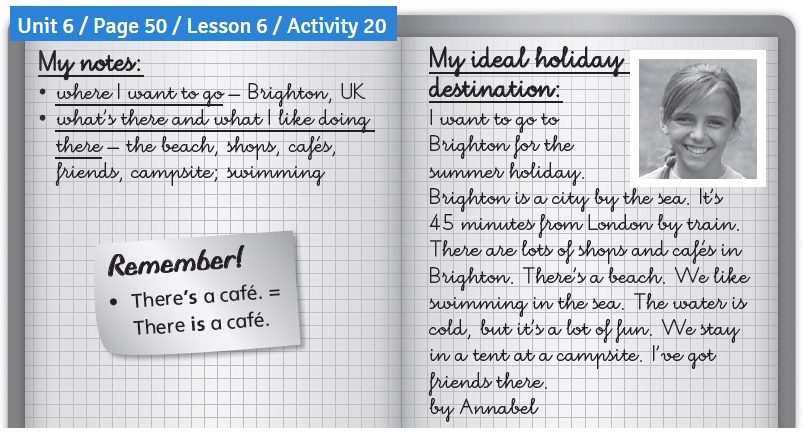 Unit 6 / Page 50 / Lesson 6 / Activity 20
My notes:
• where I want to go – Brighton, UK
• what's there and what I like doing
there – the beach, shops, cafés,
friends, campsite; swimming
Remember!
• There's a café. =
There is a café.
My ideal holiday
destination:
I want to go to
Brighton for the
summer holiday.
Brighton is a city by the sea. It's
45 minutes from London by train.
There are lots of shops and cafés in
Brighton. There's a beach. We like
swimming in the sea. The water is
cold, but it's a lot of fun. We stay
in a tent at a campsite. I've got
friends there.
by Annabel